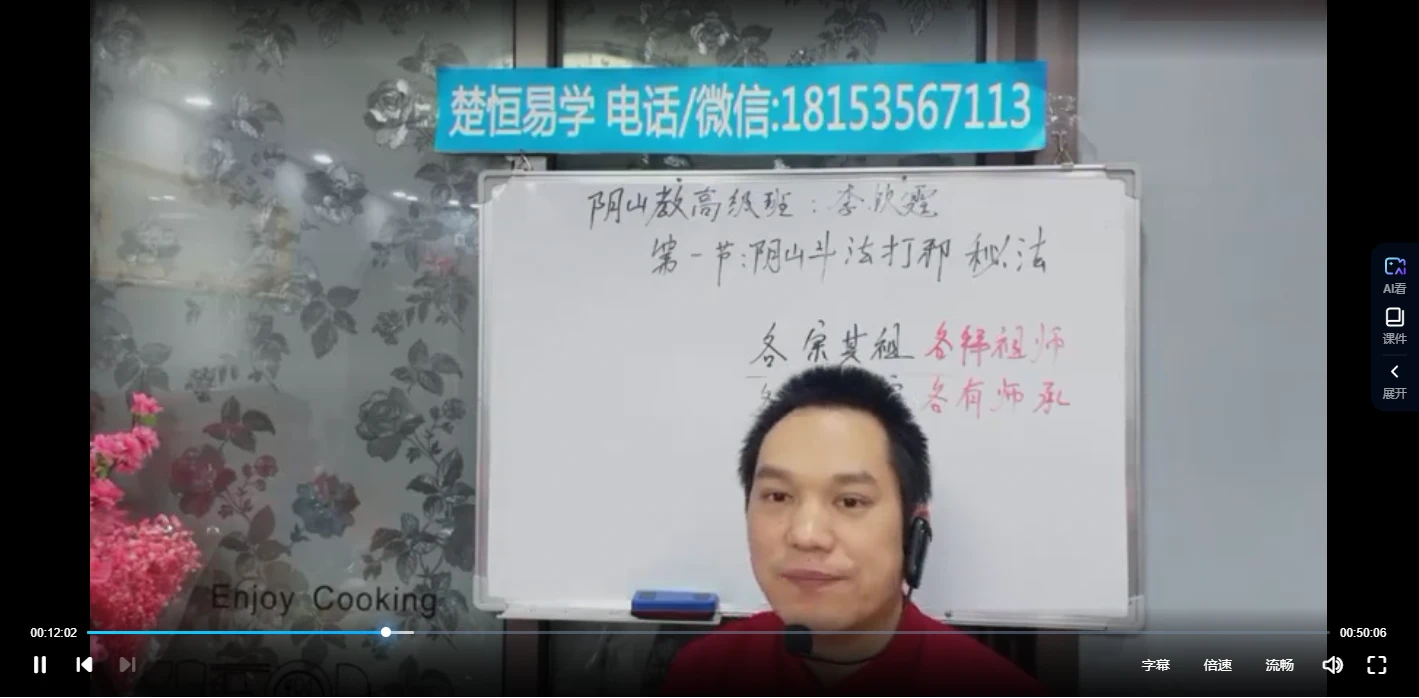 楚恒易学 电话/微信:18153567113
阴山教高级班：李欣霆
第一节:阴山斗法打邪秘法
各宗其祖 各拜祖师
各有师承
Enjoy Cooking
AI看
课件
展开
00:12:02
00:50:06
字幕
倍速
流畅